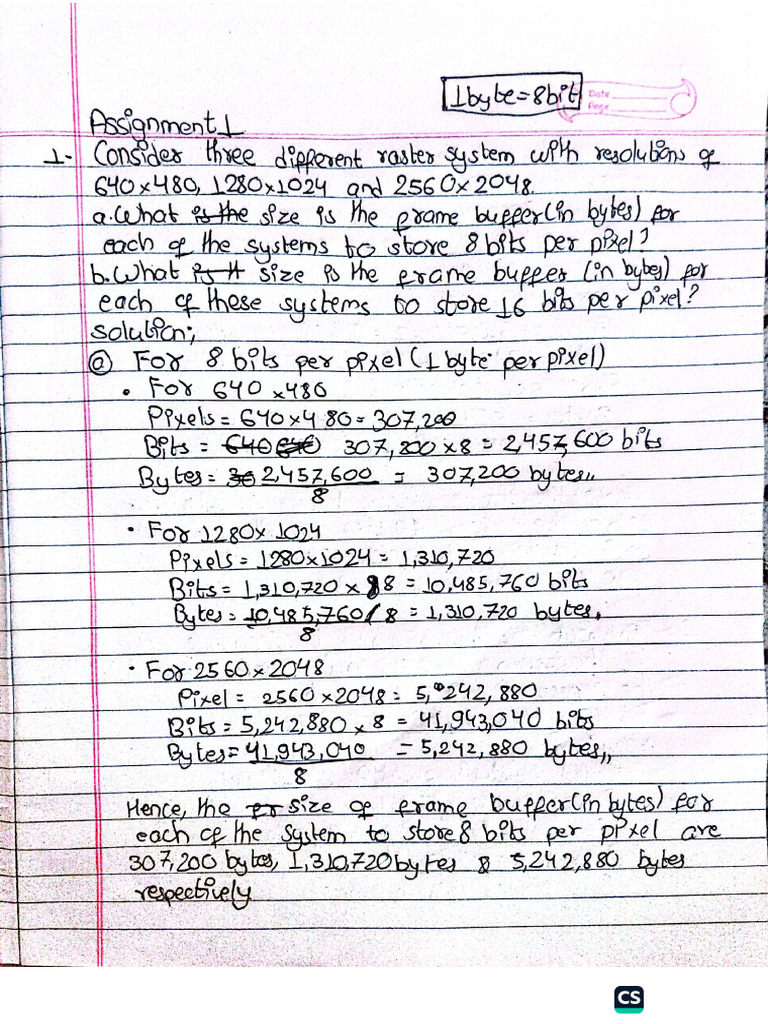 1byte=8bit
Date
Page
Assignment 1
1- Consider three different raster system with resolutions of
640×480, 1280×1024 and 2560×2048.
a.What is the size is the frame buffer(in bytes) for
each of the systems to store 8 bits per pixel?
b.What is it size is the frame buffer (in bytes) for
each of these systems to store 16 bits per pixel?
solution;
ⓐ For 8 bits per pixel (1 byte per pixel)
• For 640 ×480
Pixels = 640×480 = 307,200
Bits = 640 640 307,200 ×8 = 2,457,600 bits
Bytes = 30 2,457,600 = 307,200 bytes,,
8
• For 1280× 1024
Pixels = 1280×1024 = 1,310,720
Bits = 1,310,720 × 8 = 10,485,760 bits
Bytes = 10,485,760/ 8 = 1,310,720 bytes,
8
• For 2560×2048
Pixel = 2560 ×2048 = 5,242,880
Bits = 5,242,880 × 8 = 41,943,040 bits
Bytes = 41,943,040 = 5,242,880 bytes,,
8
Hence, the pr size of frame buffer(in bytes) for
each of the System to store 8 bits per pixel are
307,200 bytes, 1,310,720 bytes & 5,242,880 bytes
respectively
CS